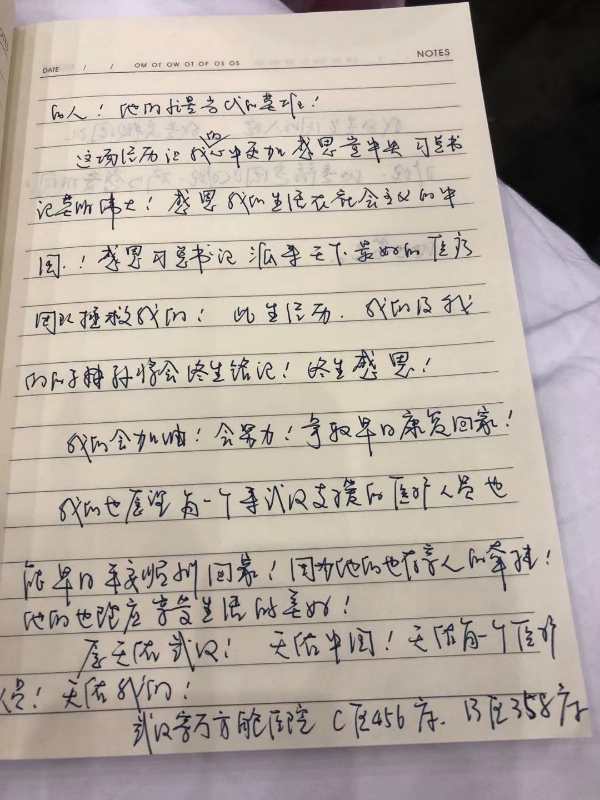 NOTES
DATE / / OM OT OW OT OF OS OS
的人！他们才是当代的英雄！
这场经历让我们心中更加感恩党中央 习总书
记英明伟大！感恩我们生活在社会主义的中
国！感恩习总书记派来天下最好的医疗
团队拯救我们！此生经历．我们及我
们的子子孙孙将会终生铭记！终生感恩！
我们会加油！会努力！争取早日康复回家！
我们也愿望每一个来武汉支援的医护人员也
能早日平安顺利回家！因为他们也有家人的牵挂！
他们也能应享受生活的美好！
愿天佑武汉！天佑中国！天佑每一个医护
人员！天佑我们！
武汉客厅方舱医院 C区456床．B区358床